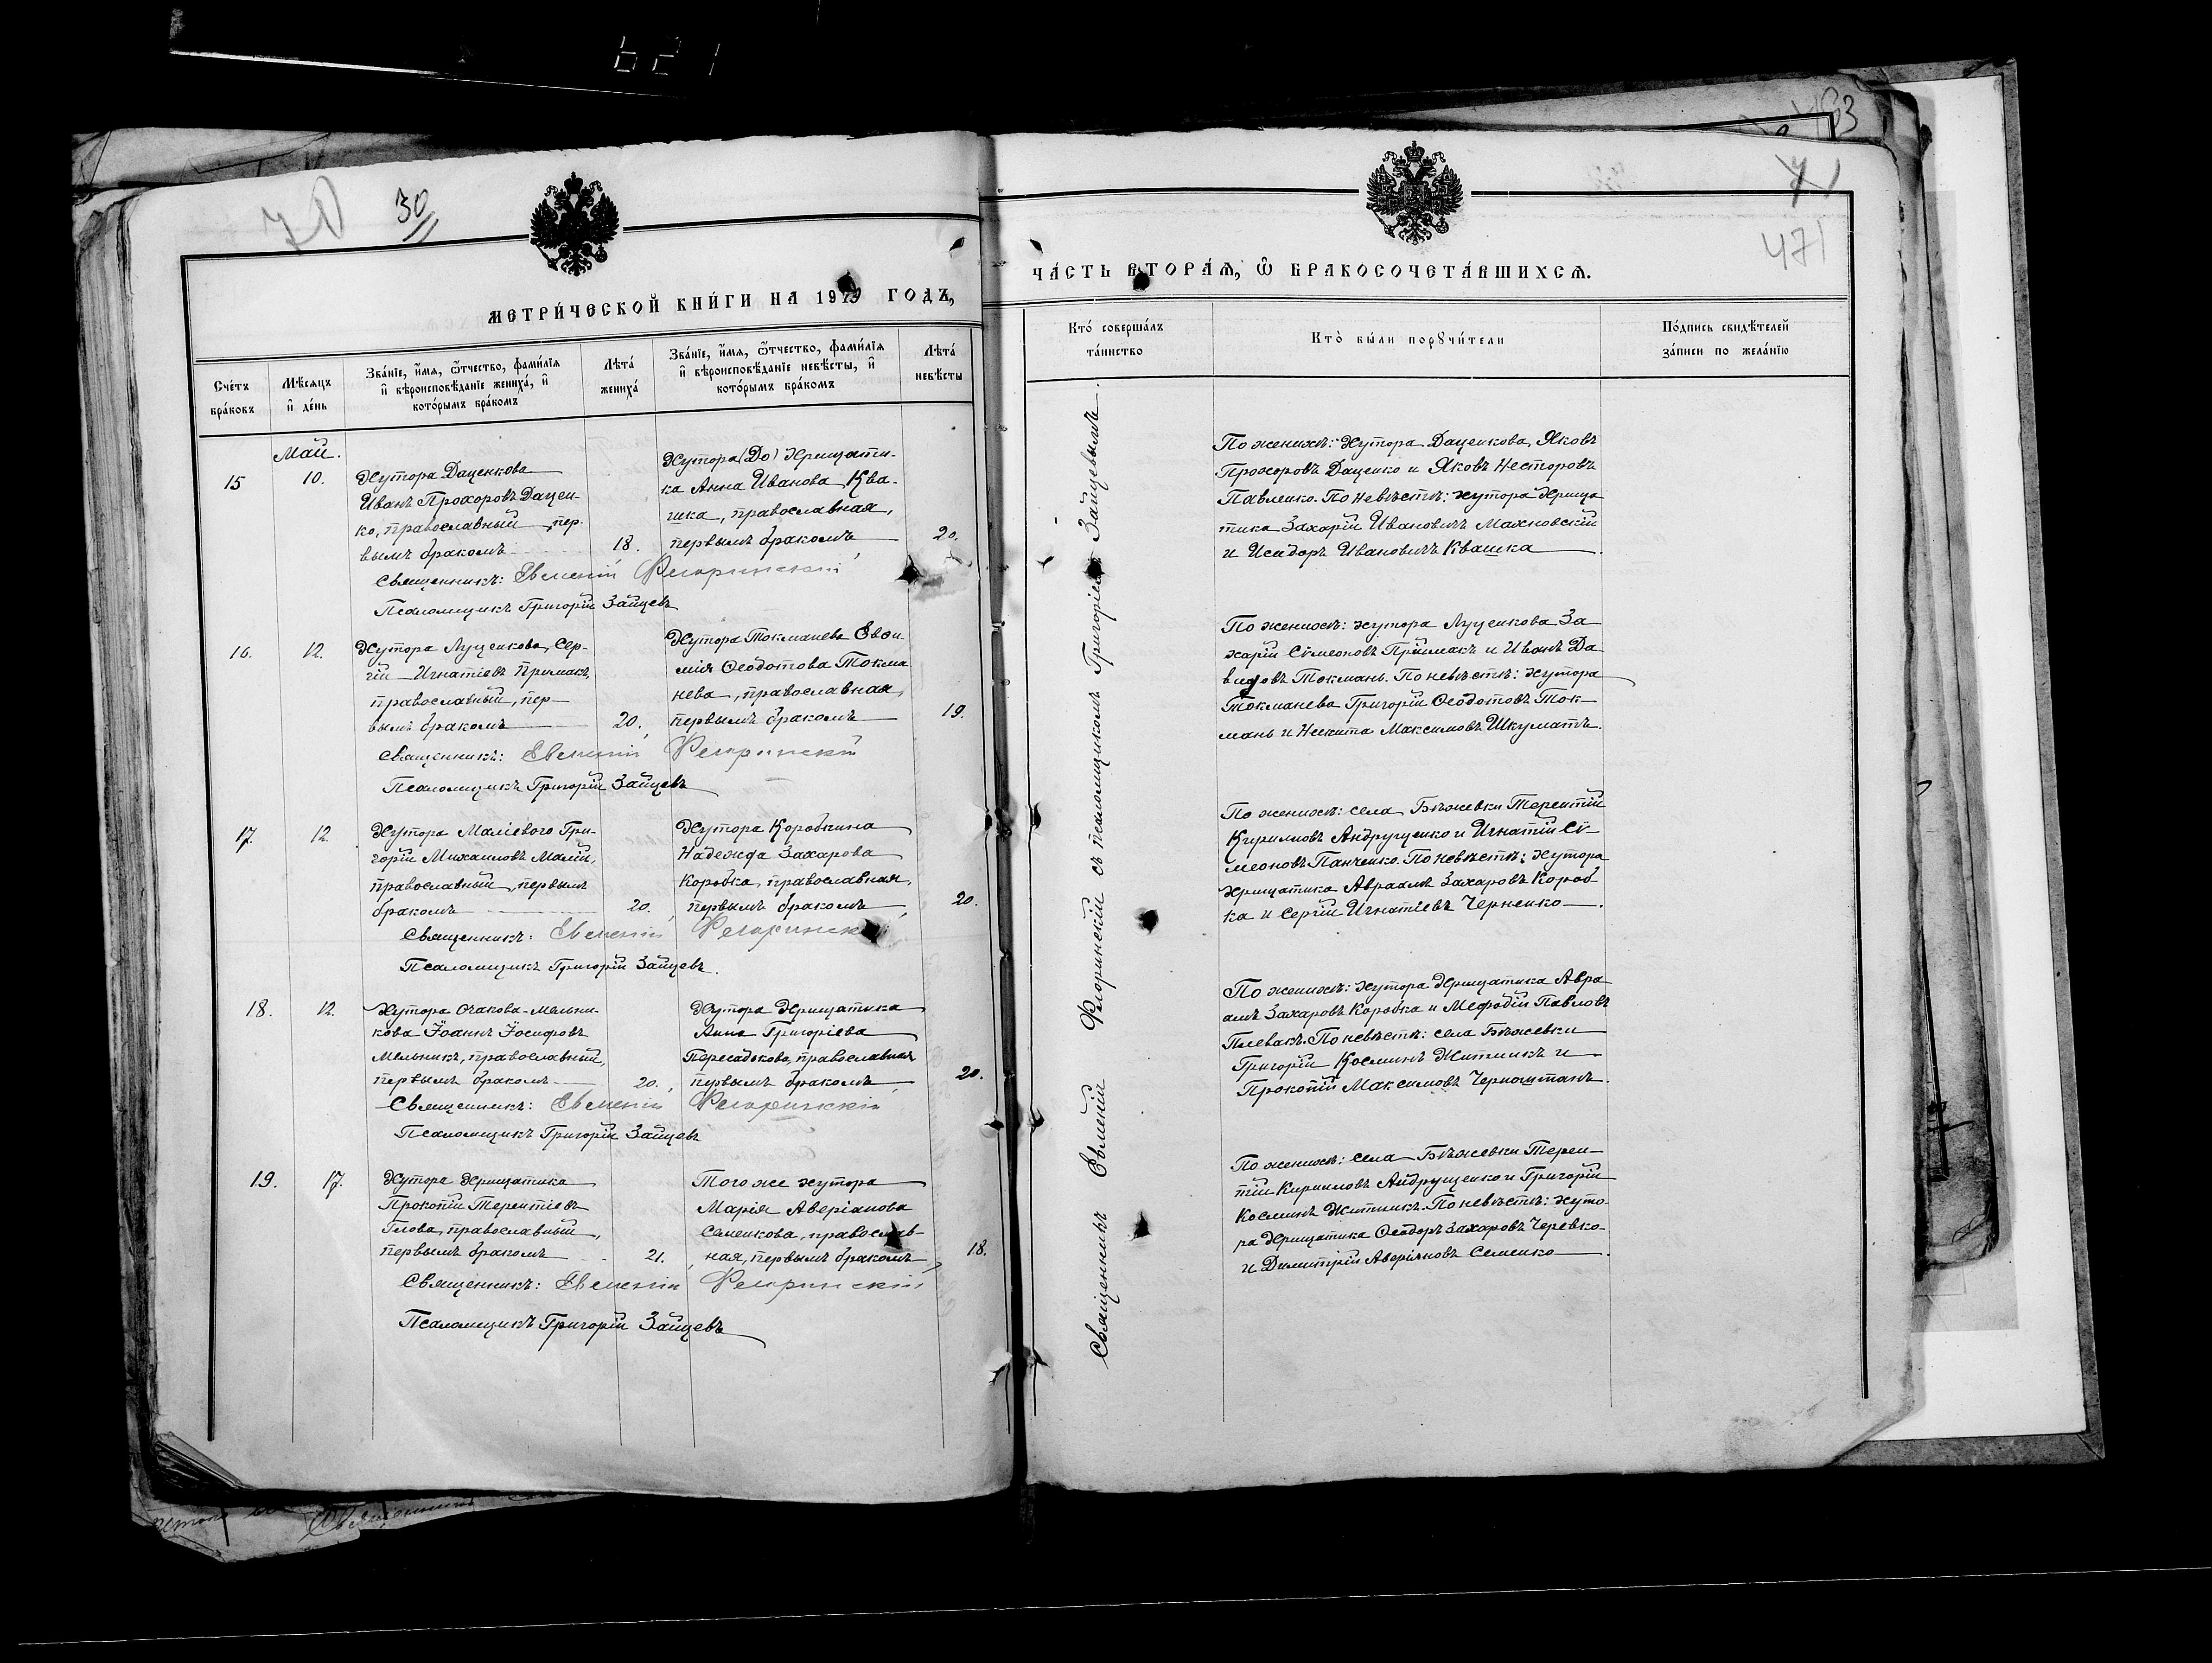 621
70
30
МЕТРИ́ЧЕСКОЙ КНИ́ГИ НА 1919 ГОДЪ,
Сче́тъ бра́ковъ
Мѣ́сяцъ и҆ де́нь
Зва́ніе, и҆́мя, ѻ҆́тчество, фами́лія
и҆ вѣроисповѣ́даніе жениха́, и҆
кото́рымъ бра́комъ
Лѣта́ жениха́
Зва́ніе, и҆́мя, ѻ҆́тчество, фами́лія
и҆ вѣроисповѣ́даніе невѣ́сты, и҆
кото́рымъ бра́комъ
Лѣта́ невѣ́сты
Май.
15
10.
Хутора Даценкова
Иванъ Прохоровъ Дацен-
ко, православный, пер-
вымъ бракомъ
18.
Хутора (До) Хрищати-
ка Анна Иванова Ква-
шка, православная,
первымъ бракомъ
20.
Священникъ: Евмений Флоринскій
Псаломщикъ Григорій Зайцевъ
16.
12.
Хутора Луценкова, Сер-
гій Игнатіевъ Примакъ,
православный, пер-
вымъ бракомъ
20.
Хутора Токманева Евѳи-
мія Ѳеодотова Токма
нева, православная,
первымъ бракомъ
19.
Священникъ: Евмений Флоринскій
Псаломщикъ Григорій Зайцевъ
17.
12.
Хутора Маліевого Гри-
горій Михаиловъ Малій,
православный, первымъ
бракомъ
20.
Хутора Коробкина
Надежда Захарова
Коробка, православная,
первымъ бракомъ
20.
Священникъ: Евмений Флоринскій
Псаломщикъ Григорій Зайцевъ.
18.
12.
Хутора Очакова-Мельни-
кова Іоаннъ Іосифовъ
Мельникъ, православный,
первымъ бракомъ
20.
Хутора Хрищатика
Анна Григоріева
Пересадькова, православная
первымъ бракомъ
20.
Священникъ: Евмений Флоринскій
Псаломщикъ Григорій Зайцевъ
19.
17.
Хутора Хрищатика
Прокопій Терентіевъ
Глова, православный,
первымъ бракомъ
21.
Того же хутора
Марія Аверіанова
Семенкова, православ-
ная, первымъ бракомъ
18.
Священникъ: Евмений Флоринскій
Псаломщикъ Григорій Зайцевъ
71
471
ЧА́СТЬ ВТОРА́Я, Ѡ҆ БРАКОСОЧЕТА́ВШИХСЯ.
Кто́ соверша́лъ
та́инство
Кто̀ бы́ли порꙋчи́тели
По́дпись свидѣ́телей
за́писи по жела́нію
Священникъ Евмений Флоринскій съ псаломщикомъ Григоріемъ Зайцевымъ.
По женихѣ: Хутора Даценкова, Яковъ
Прохоровъ Даценко и Яковъ Несторовъ
Павленко. По невѣстѣ: хутора Хрища
тика Захарій Ивановичъ Махновскій
и Исидоръ Ивановичъ Квашка.
По женихѣ: хутора Луценкова За
харій Сѵмеоновъ Приймакъ и Иванъ Да-
видовъ Токмань. По невѣстѣ: хутора
Токманева Григорій Ѳеодотовъ Ток-
мань и Никита Максимовъ Шкуматъ.
По женихѣ: села Бѣжевки Терентій
Кирилловъ Андрущенко и Игнатій Сѵ-
меоновъ Панченко. По невѣстѣ: хутора
Хрищатика Авраамъ Захаровъ Короб-
ка и Сергій Игнатіевъ Черненко.
По женихѣ: хутора Хрищатика Авра
амъ Захаровъ Коробка и Меѳодій Павловъ
Плевакъ. По невѣстѣ: села Бѣжевки
Григорій Косминъ Житникъ и
Прокопій Максимовъ Черноштанъ.
По женихѣ: села Бѣжевки Терен-
тій Кирилловъ Андрущенко и Григорій
Косминъ Житникъ. По невѣстѣ: хуто-
ра Хрищатика Ѳеодоръ Захаровъ Черевко-
и Димитрій Аверіановъ Семенко.